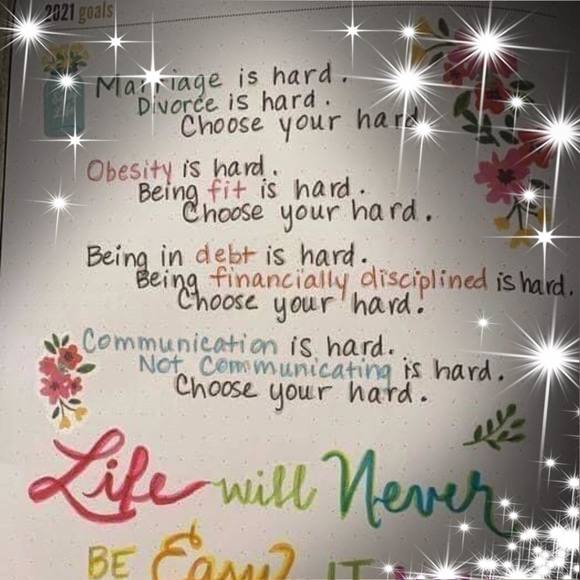 2021 goals
Marriage is hard.
Divorce is hard.
Choose your hard
Obesity is hard.
Being fit is hard.
Choose your hard.
Being in debt is hard.
Being financially disciplined is hard.
Choose your hard.
Communication is hard.
Not Communicating is hard.
Choose your hard.
Life will Never
BE Easy IT